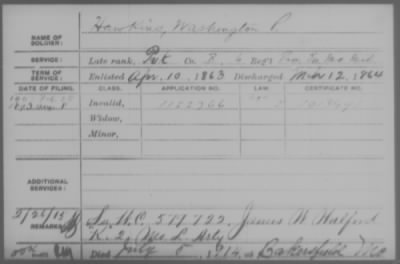 Hawkins, Washington P
NAME OF SOLDIER:
SERVICE: Late rank, Pvt Co. B, 6 Reg't Pro. En. Mo Mil.
TERM OF SERVICE: Enlisted Apr. 10, 1863 Discharged Mch 12, 1864
DATE OF FILING. CLASS. APPLICATION NO. LAW. CERTIFICATE NO.
Invalid, 1122366
Widow,
Minor,
ADDITIONAL SERVICES:
REMARKS: In W.C. 517722, James W Halford
K. 2, Mo. L. Arty
Died July 5, 1914, at Bakersfield Mo